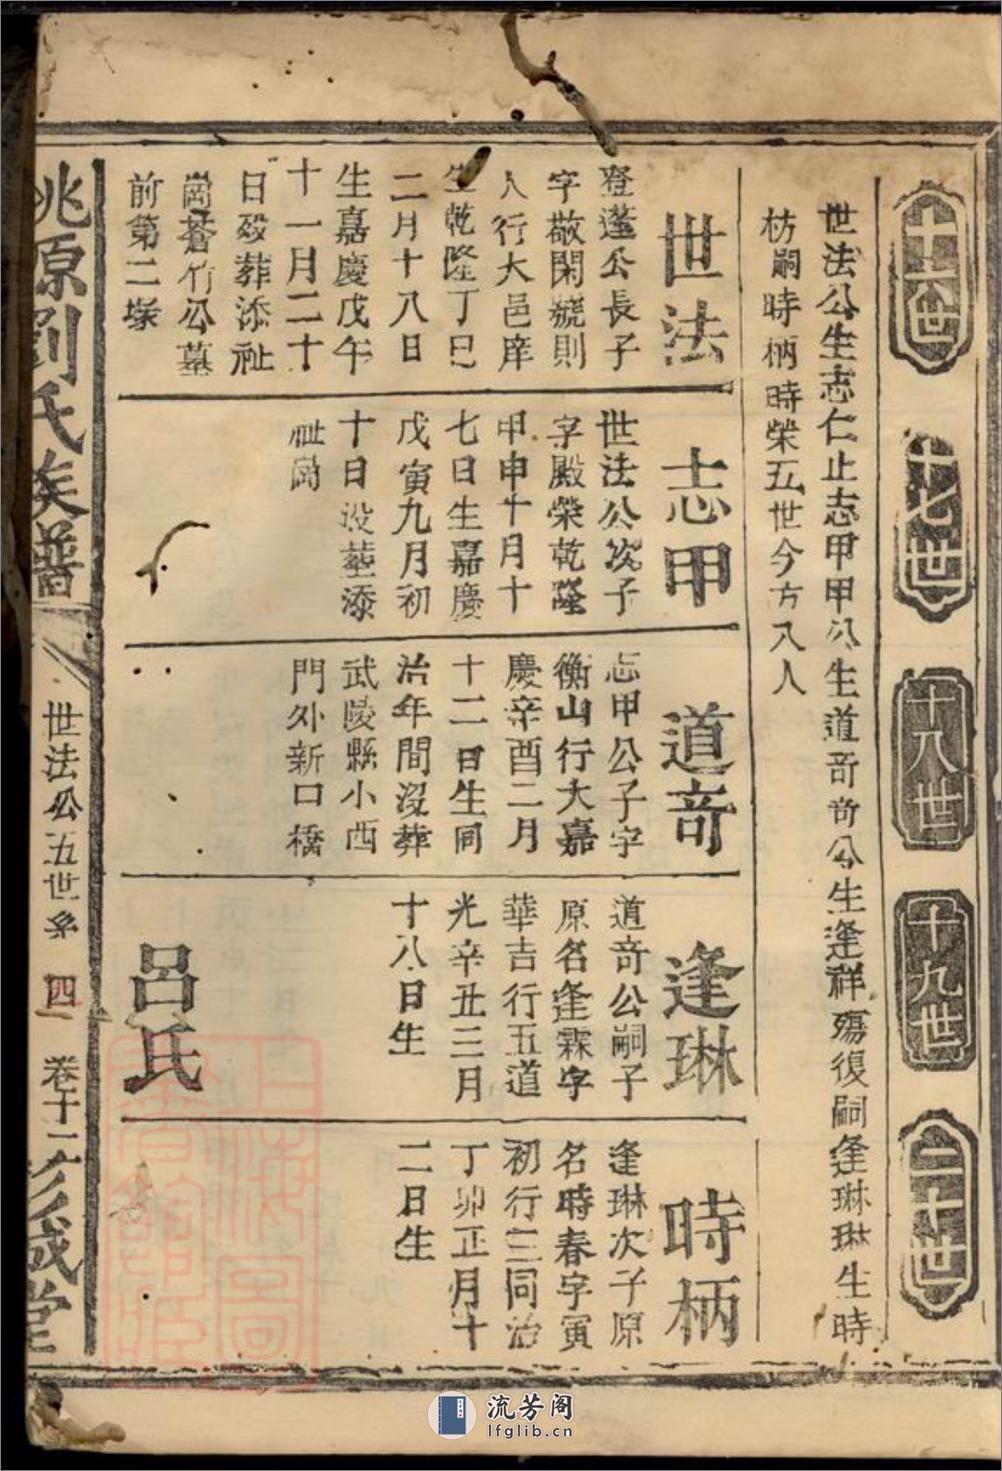 十六世
十七世
十八世
十九世
二十世
世法公生志仁止志甲甲公生道奇奇公生逢祥殤復嗣逢琳琳生時
枋嗣時柄時榮五世今方入人
世法
登蓬公長子
字敬閑號則
人行大邑庠
生乾隆丁巳
二月十八日
生嘉慶戊午
十一月二十
日歿葬添祉
崗蒼竹公墓
前第二塚
志甲
世法公次子
字殿榮乾隆
甲申十月十
七日生嘉慶
戊寅九月初
十日沒塟添
祉崗
道奇
志甲公子字
衡山行大嘉
慶辛酉二月
十二日生同
治年間沒葬
武陵縣小西
門外新口橋
逢琳
道奇公嗣子
原名逢霖字
華吉行五道
光辛丑三月
十八日生
呂氏
時柄
逢琳次子原
名時春字寅
初行三同治
丁卯正月十
二日生
桃源劉氏族譜
世法公五世系
四
卷十二
彭城堂
流芳阁
lfglib.cn